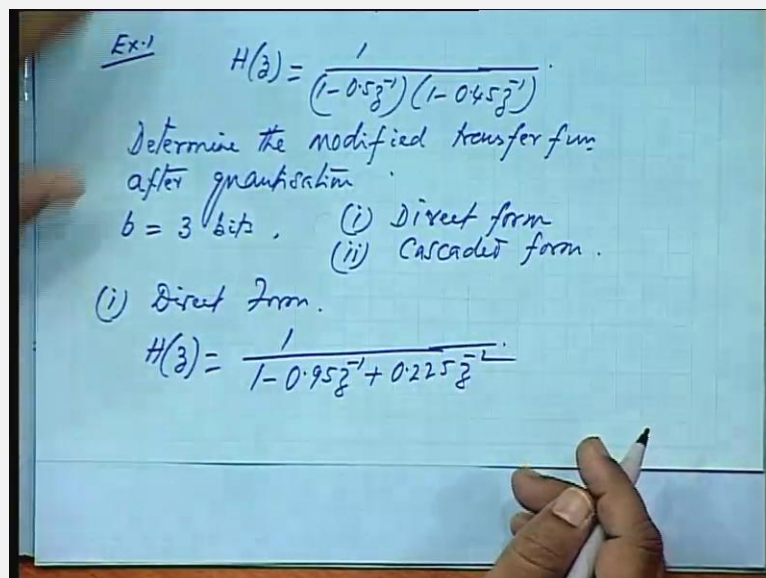 Ex.1
H(z) = 1 / (1-0.5z⁻¹)(1-0.45z⁻¹).
Determine the modified transfer fun.
after quantisation.
b = 3 bits. (i) Direct form
(ii) Cascaded form.
(i) Direct Form.
H(z) = 1 / 1-0.95z⁻¹+0.225z⁻²